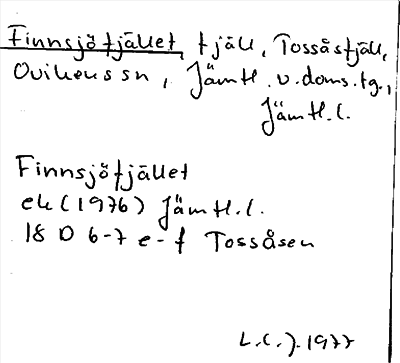 Finnsjöfjället, fjäll, Tossåsfjäll,
Ovikens sn, Jämtl. v. doms. tg.,
Jämtl. l.
Finnsjöfjället
ek (1976) Jämtl. l.
18 D 6-7 e-f Tossåsen
L.C.J. 1977